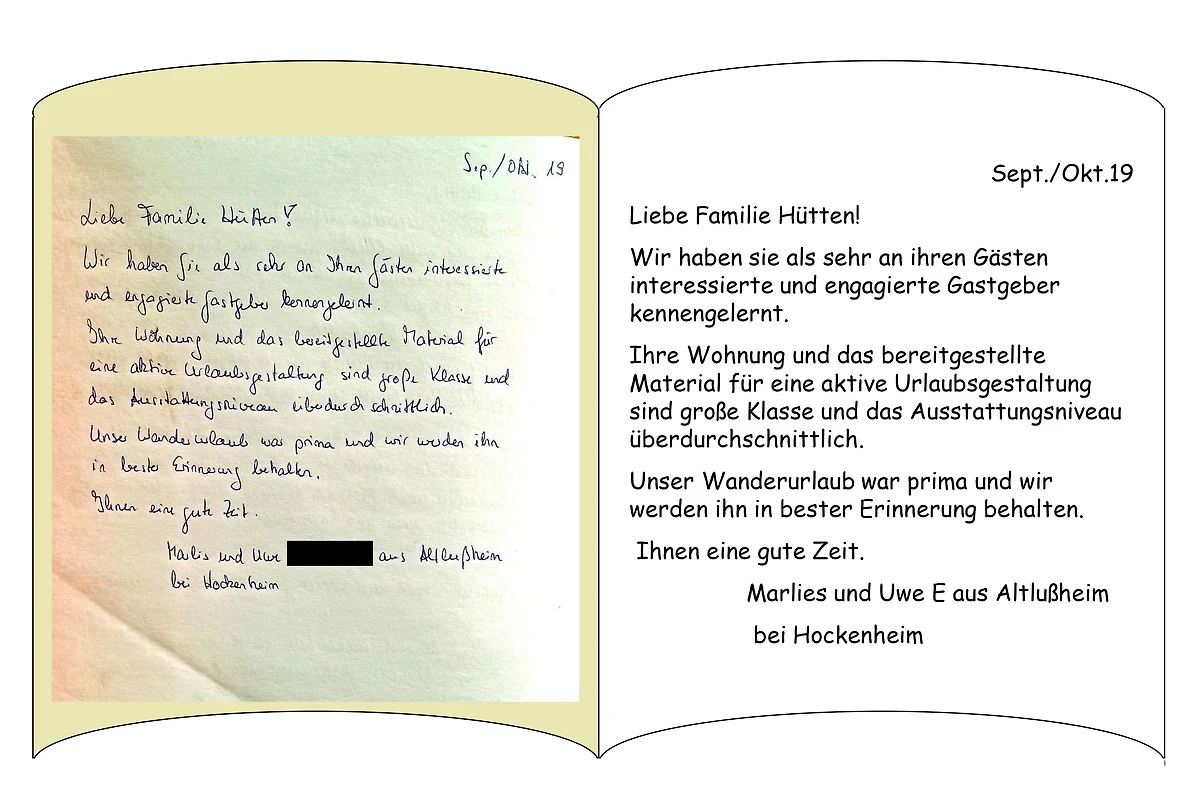 Sep./Okt. 19
Liebe Familie Hütten!
Wir haben Sie als sehr an Ihren Gästen interessierte
und engagierte Gastgeber kennengelernt.
Ihre Wohnung und das bereitgestellte Material für
eine aktive Urlaubsgestaltung sind große Klasse und
das Ausstattungsniveau überdurchschnittlich.
Unser Wanderurlaub war prima und wir werden ihn
in bester Erinnerung behalten.
Ihnen eine gute Zeit.
Marlis und Uwe aus Altlußheim
bei Hockenheim
Sept./Okt.19
Liebe Familie Hütten!
Wir haben sie als sehr an ihren Gästen
interessierte und engagierte Gastgeber
kennengelernt.
Ihre Wohnung und das bereitgestellte
Material für eine aktive Urlaubsgestaltung
sind große Klasse und das Ausstattungsniveau
überdurchschnittlich.
Unser Wanderurlaub war prima und wir
werden ihn in bester Erinnerung behalten.
Ihnen eine gute Zeit.
Marlies und Uwe E aus Altlußheim
bei Hockenheim